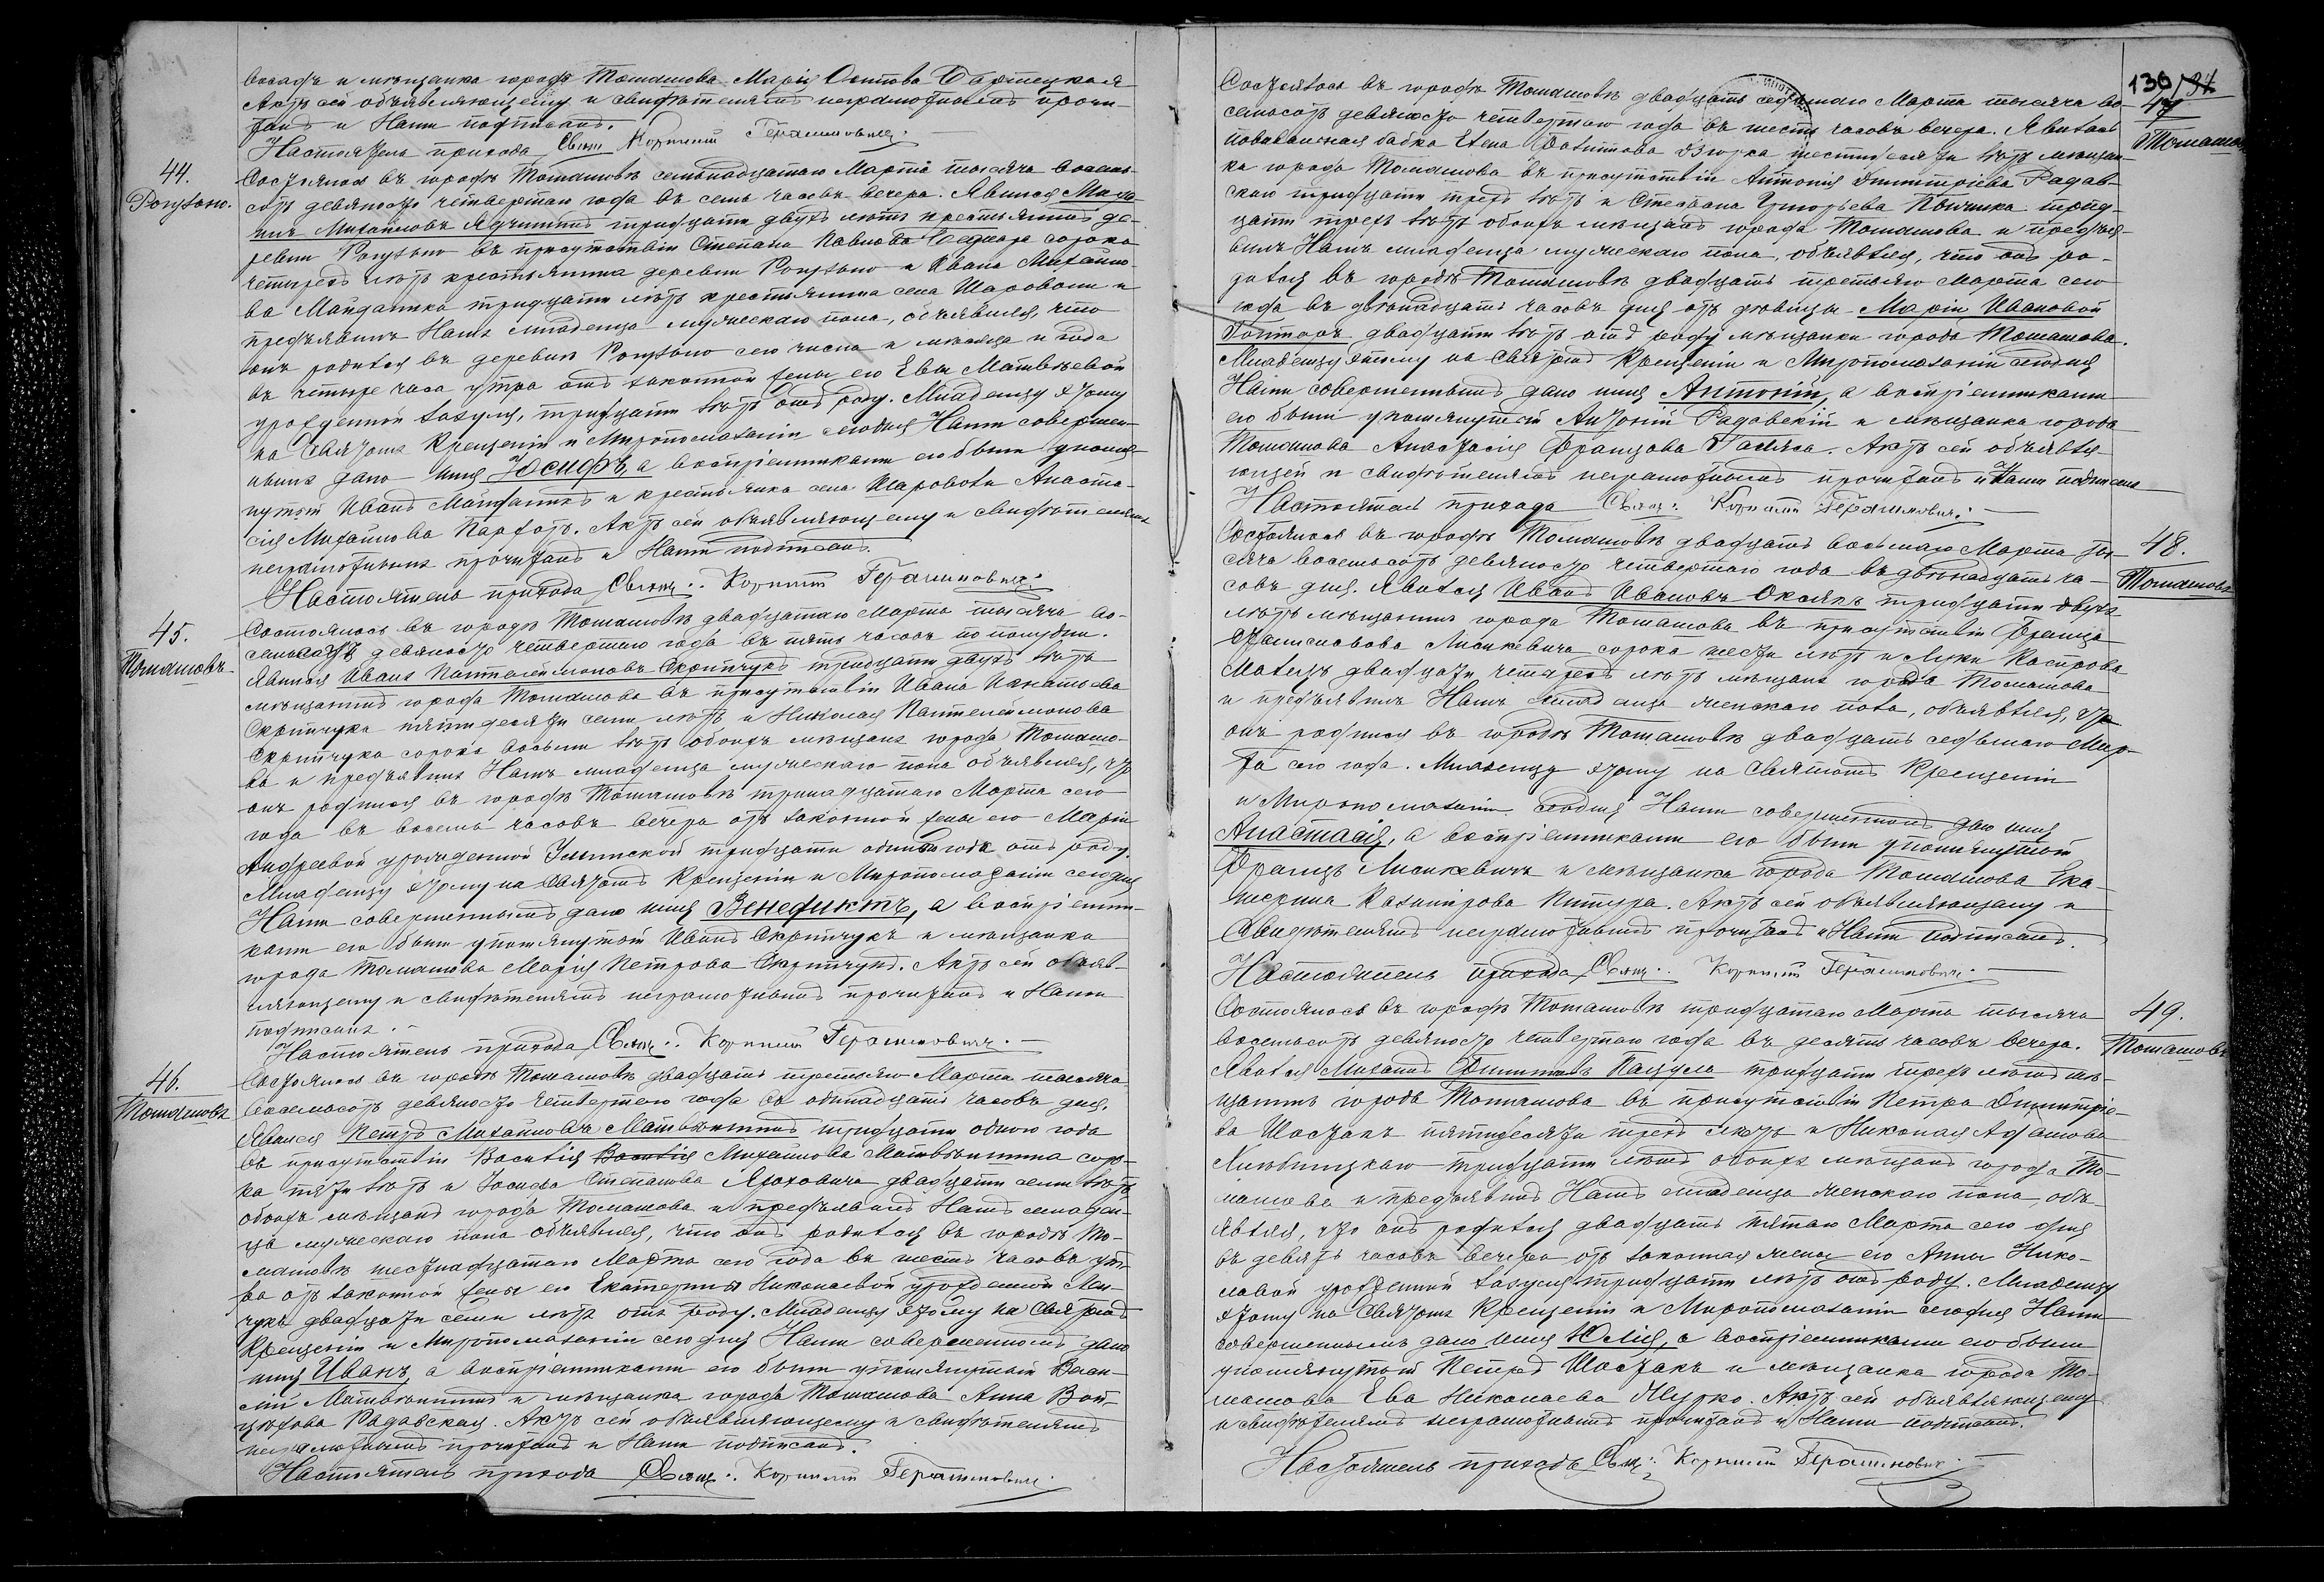 восафъ и мѣщанка города Томашова Марія Осипова
Актъ сей объявляющему и свидѣтелямъ неграмотнымъ прочи-
танъ и Нами подписанъ.
Настоятель прихода Свящ. Корнилій Герасимовичъ.
44.
Состоялось въ городѣ Томашовѣ семьнадцатаго Марта тысяча восемь-
сотъ девяносто четвертаго года въ семь часовъ вечера. Явился Миха-
илъ Михайловъ тридцати двухъ лѣтъ крестьянинъ де-
ревни въ присутствіи Степана Павлова сорока
четырехъ лѣтъ крестьянина деревни и Ивана Михайло-
ва Майданика тридцати лѣтъ крестьянина села Шароволи и
предъявилъ Намъ младенца мужескаго пола, объявляя, что
онъ родился въ деревнѣ сего числа и мѣсяца и года
въ четыре часа утра отъ законной жены его Евы Матвѣевой
урожденной Закуля, тридцати лѣтъ отъ роду. Младенцу этому
на Святомъ Крещеніи и Миропомазаніи сегодня Нами совершен-
нымъ дано имя Іосифъ, а воспріемниками его были упомя-
нутый Иванъ Майданикъ и крестьянка села Шароволи Анаста-
сія Михайлова Пархотъ. Актъ сей объявляющему и свидѣтелямъ
неграмотнымъ прочитанъ и Нами подписанъ.
Настоятель прихода Свящ. Корнилій Герасимовичъ.
45.
Томашовъ.
Состоялось въ городѣ Томашовѣ двадцатаго Марта тысяча во-
семьсотъ девяносто четвертаго года въ пять часовъ по полудни.
Явился Иванъ Пантелеймоновъ Скрипчукъ тридцати двухъ лѣтъ
мѣщанинъ города Томашова въ присутствіи Ивана Игнатьева
Скрипчука пятидесяти семи лѣтъ и Николая Пантелеймонова
Скрипчука сорока восьми лѣтъ обоихъ мѣщанъ города Томашо-
ва и предъявилъ Намъ младенца мужескаго пола объявляя, что
онъ родился въ городѣ Томашовѣ тринадцатаго Марта сего
года въ восемь часовъ вечера отъ законной жены его Маріи
Андреевой урожденной тридцати одного года отъ роду.
Младенцу этому на Святомъ Крещеніи и Миропомазаніи сегодня
Нами совершеннымъ дано имя Венедиктъ, а воспріемни-
ками его были упомянутый Иванъ Скрипчукъ и мѣщанка
города Томашова Марія Петрова Скрипчукъ. Актъ сей объяв-
ляющему и свидѣтелямъ неграмотнымъ прочитанъ и Нами
подписанъ.
Настоятель прихода Свящ. Корнилій Герасимовичъ.
46.
Томашовъ
Состоялось въ городѣ Томашовѣ двадцать третьяго Марта тысяча
восемьсотъ девяносто четвертаго года въ одинадцать часовъ дня.
Явился Петръ Михайловъ Матвѣишинъ тридцати одного года
въ присутствіи Василія Василія Михайлова Матвѣишина соро-
ка пяти лѣтъ и Іосифа Степанова двадцати семи лѣтъ
обоихъ мѣщанъ города Томашова и предъявилъ Намъ младен-
ца мужескаго пола объявляя, что онъ родился въ городѣ То-
машовѣ шестнадцатаго Марта сего года въ шесть часовъ ут-
ра отъ законной жены его Екатерины Николаевой урожденной
двадцати семи лѣтъ отъ роду. Младенцу этому на Святомъ
Крещеніи и Миропомазаніи сегодня Нами совершенномъ дано
имя Иванъ, а воспріемниками его были упомянутый Васи-
лій Матвѣишинъ и мѣщанка города Томашова Анна Вой-
цѣхова Радавская. Актъ сей объявляющему и свидѣтелямъ
неграмотнымъ прочитанъ и Нами подписанъ.
Настоятель прихода Свящ. Корнилій Герасимовичъ.
136
47
Томашовъ
Состоялось въ городѣ Томашовѣ двадцать седьмаго Марта тысяча во-
семьсотъ девяносто четвертаго года въ шесть часовъ вечера. Явилась
повивальная бабка Елена шестидесяти лѣтъ мѣщан-
ка города Томашова въ присутствіи Антонія Дмитріева Радав-
скаго тридцати трехъ лѣтъ и Степана Григорьева трид-
цати трехъ лѣтъ обоихъ мѣщанъ города Томашова и предъя-
вилъ Намъ младенца мужескаго пола, объявляя, что онъ ро-
дился въ городѣ Томашовѣ двадцать третьяго Марта сего
года въ двѣнадцать часовъ дня отъ дѣвицы Маріи Ивановой
Гонтарь двадцати лѣтъ отъ роду мѣщанки города Томашова.
Младенцу этому на Святомъ Крещеніи и Миропомазаніи сегодня
Нами совершеннымъ дано имя Антоній, а воспріемниками
его были упомянутый Антоній Радавскій и мѣщанка города
Томашова Анастасія Францова. Актъ сей объявля-
ющей и свидѣтелямъ неграмотнымъ прочитанъ и Нами подписанъ
Настоятель прихода Свящ. Корнилій Герасимовичъ.
48.
Томашовъ
Состоялось въ городѣ Томашовѣ двадцать восьмаго Марта ты-
сяча восемьсотъ девяносто четвертаго года въ двѣнадцать ча-
совъ дня. Явился Иванъ Ивановъ тридцати двухъ
лѣтъ мѣщанинъ города Томашова въ присутствіи Франца
Станиславова Лисикевича сорока шести лѣтъ и Луки
двадцати четырехъ лѣтъ мѣщанъ города Томашова
и предъявилъ Намъ младенца женскаго пола, объявляя, что
онъ родился въ городѣ Томашовѣ двадцать седьмаго Мар-
та сего года. Младенцу этому на Святомъ Крещеніи
и Миропомазаніи сегодня Нами совершенномъ дано имя
Анастасія, а воспріемниками его были упомянутый
Францъ Лисикевичъ и мѣщанка города Томашова Ека-
терина Казимірова. Актъ сей объявляющему и
свидѣтелямъ неграмотнымъ прочитанъ и Нами подписанъ.
Настоятель прихода Свящ. Корнилій Герасимовичъ.
49.
Томашовъ
Состоялось въ городѣ Томашовѣ тридцатаго Марта тысяча
восемьсотъ девяносто четвертаго года въ десять часовъ вечера.
Явился Михаилъ тридцати трехъ лѣтъ мѣ-
щанинъ города Томашова въ присутствіи Петра Дмитріе-
ва Шостакъ пятидесяти трехъ лѣтъ и Николая Адамова
тридцати лѣтъ обоихъ мѣщанъ города То-
машова и предъявилъ Намъ младенца женскаго пола, объ-
являя, что онъ родился двадцать пятаго Марта сего дня
въ девять часовъ вечера отъ законная жены его Анны Нико-
лавой урожденной Закуля тридцати лѣтъ отъ роду. Младенцу
этому на Святомъ Крещеніи и Миропомазаніи сегодня Нами
совершеннымъ дано имя Юлія, а воспріемниками его были
упомянутый Петръ Шостакъ и мѣщанка города То-
машова Ева Николаева. Актъ сей объявляющему
и свидѣтелямъ неграмотнымъ прочитанъ и Нами подписанъ.
Настоятель прихода Свящ. Корнилій Герасимовичъ.